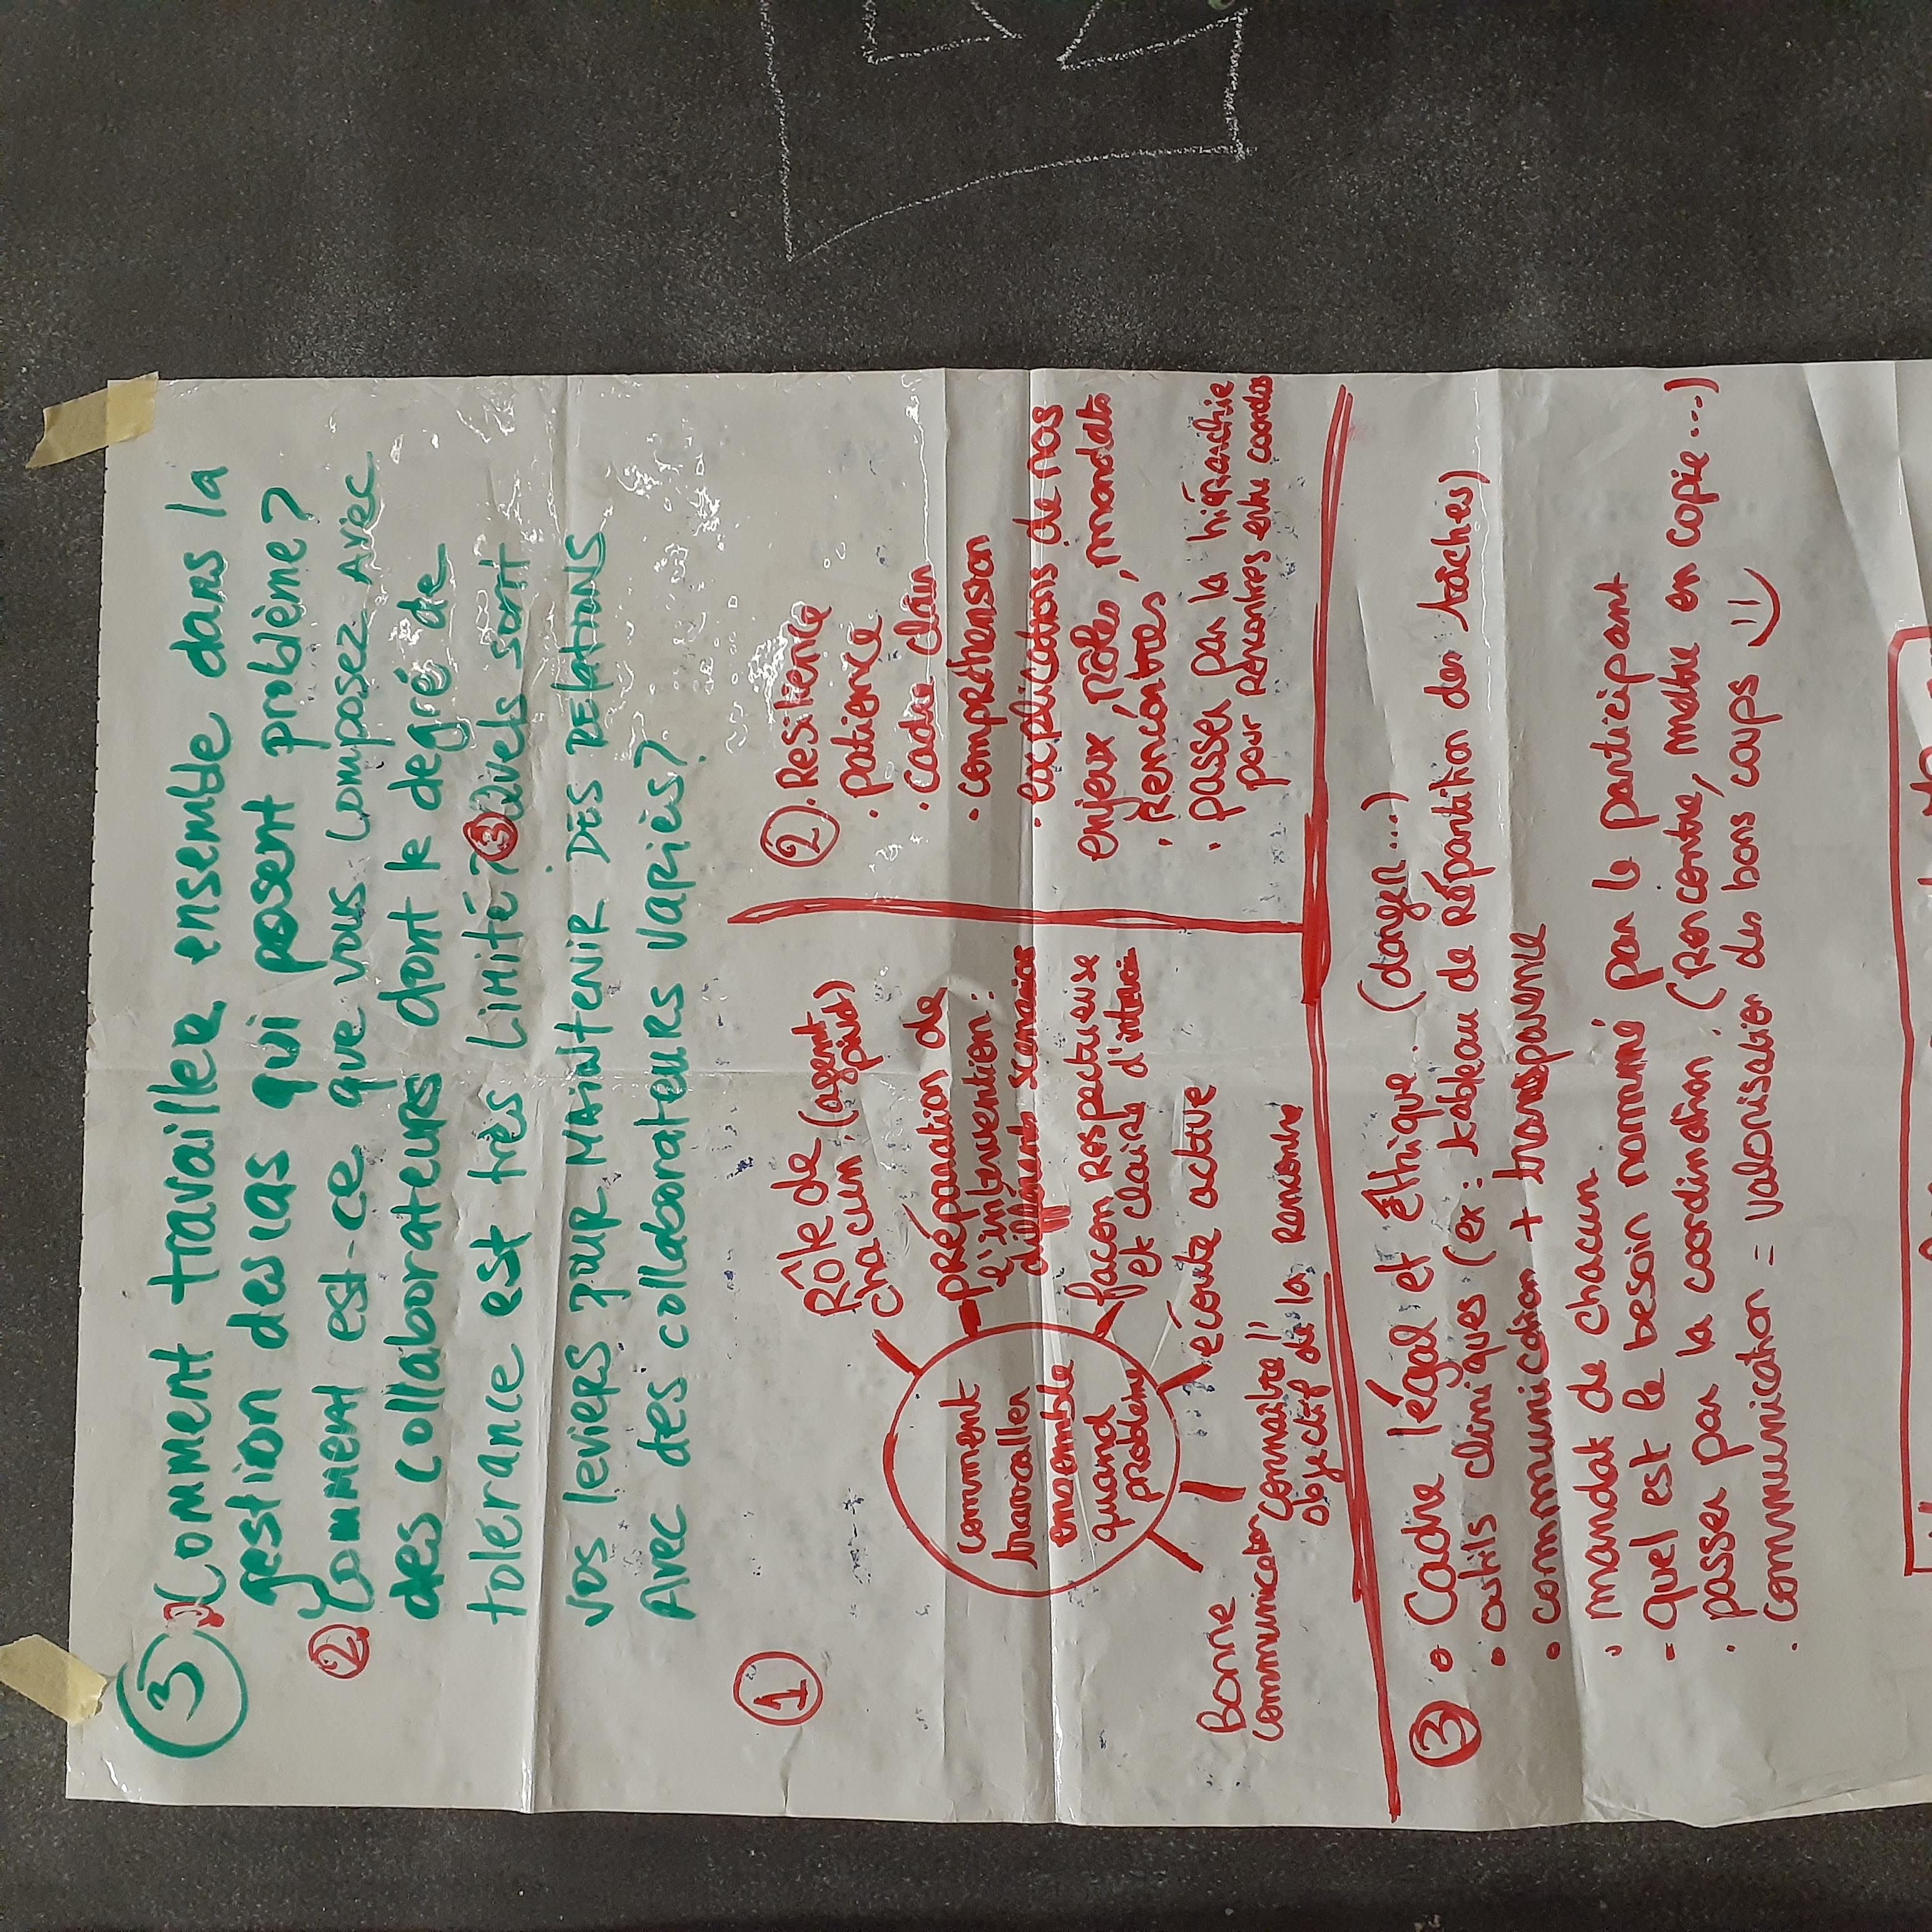 3
1 Comment travailler ensemble dans la
gestion des cas qui posent problème?
2 Comment est-ce que vous composez avec
des collaborateurs dont le degré de
tolérance est très limité? 3 Quels sont
vos leviers pour maintenir des relations
avec des collaborateurs variés?
1
Rôle de
chacun (agent
pivot)
préparation de
l'intervention:
différents scénarios
façon respectueuse
et claire d'interven
écoute active
connaître l'
objectif de la rencontre
Bonne
communication
comment
travailler
ensemble
quand
problème
2 . Resilience
. patience
. cadre clair
. compréhension
. explications de nos
enjeux, rôles, mandats
. rencontres
. passer par la hiérarchie
pour rencontres entre coordos
3 o Cadre légal et éthique. (danger...)
• outils cliniques (ex: tableau de répartition des tâches)
• communication + transparence
. mandat de chacun
- quel est le besoin nommé par le participant
. passer par la coordination. (Rencontre, mettre en copie...)
. communication = valorisation des bons coups =)